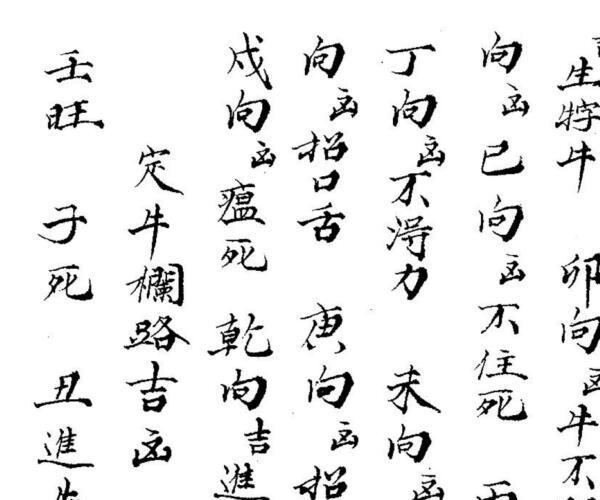 生牸牛 卯向凶牛不
向凶巳向凶不住死
丁向凶不淂力 未向凶
向凶招口舌 庚向凶招
戌向凶瘟死 乾向吉進
定牛欄路吉凶
壬旺 子死 丑進牛